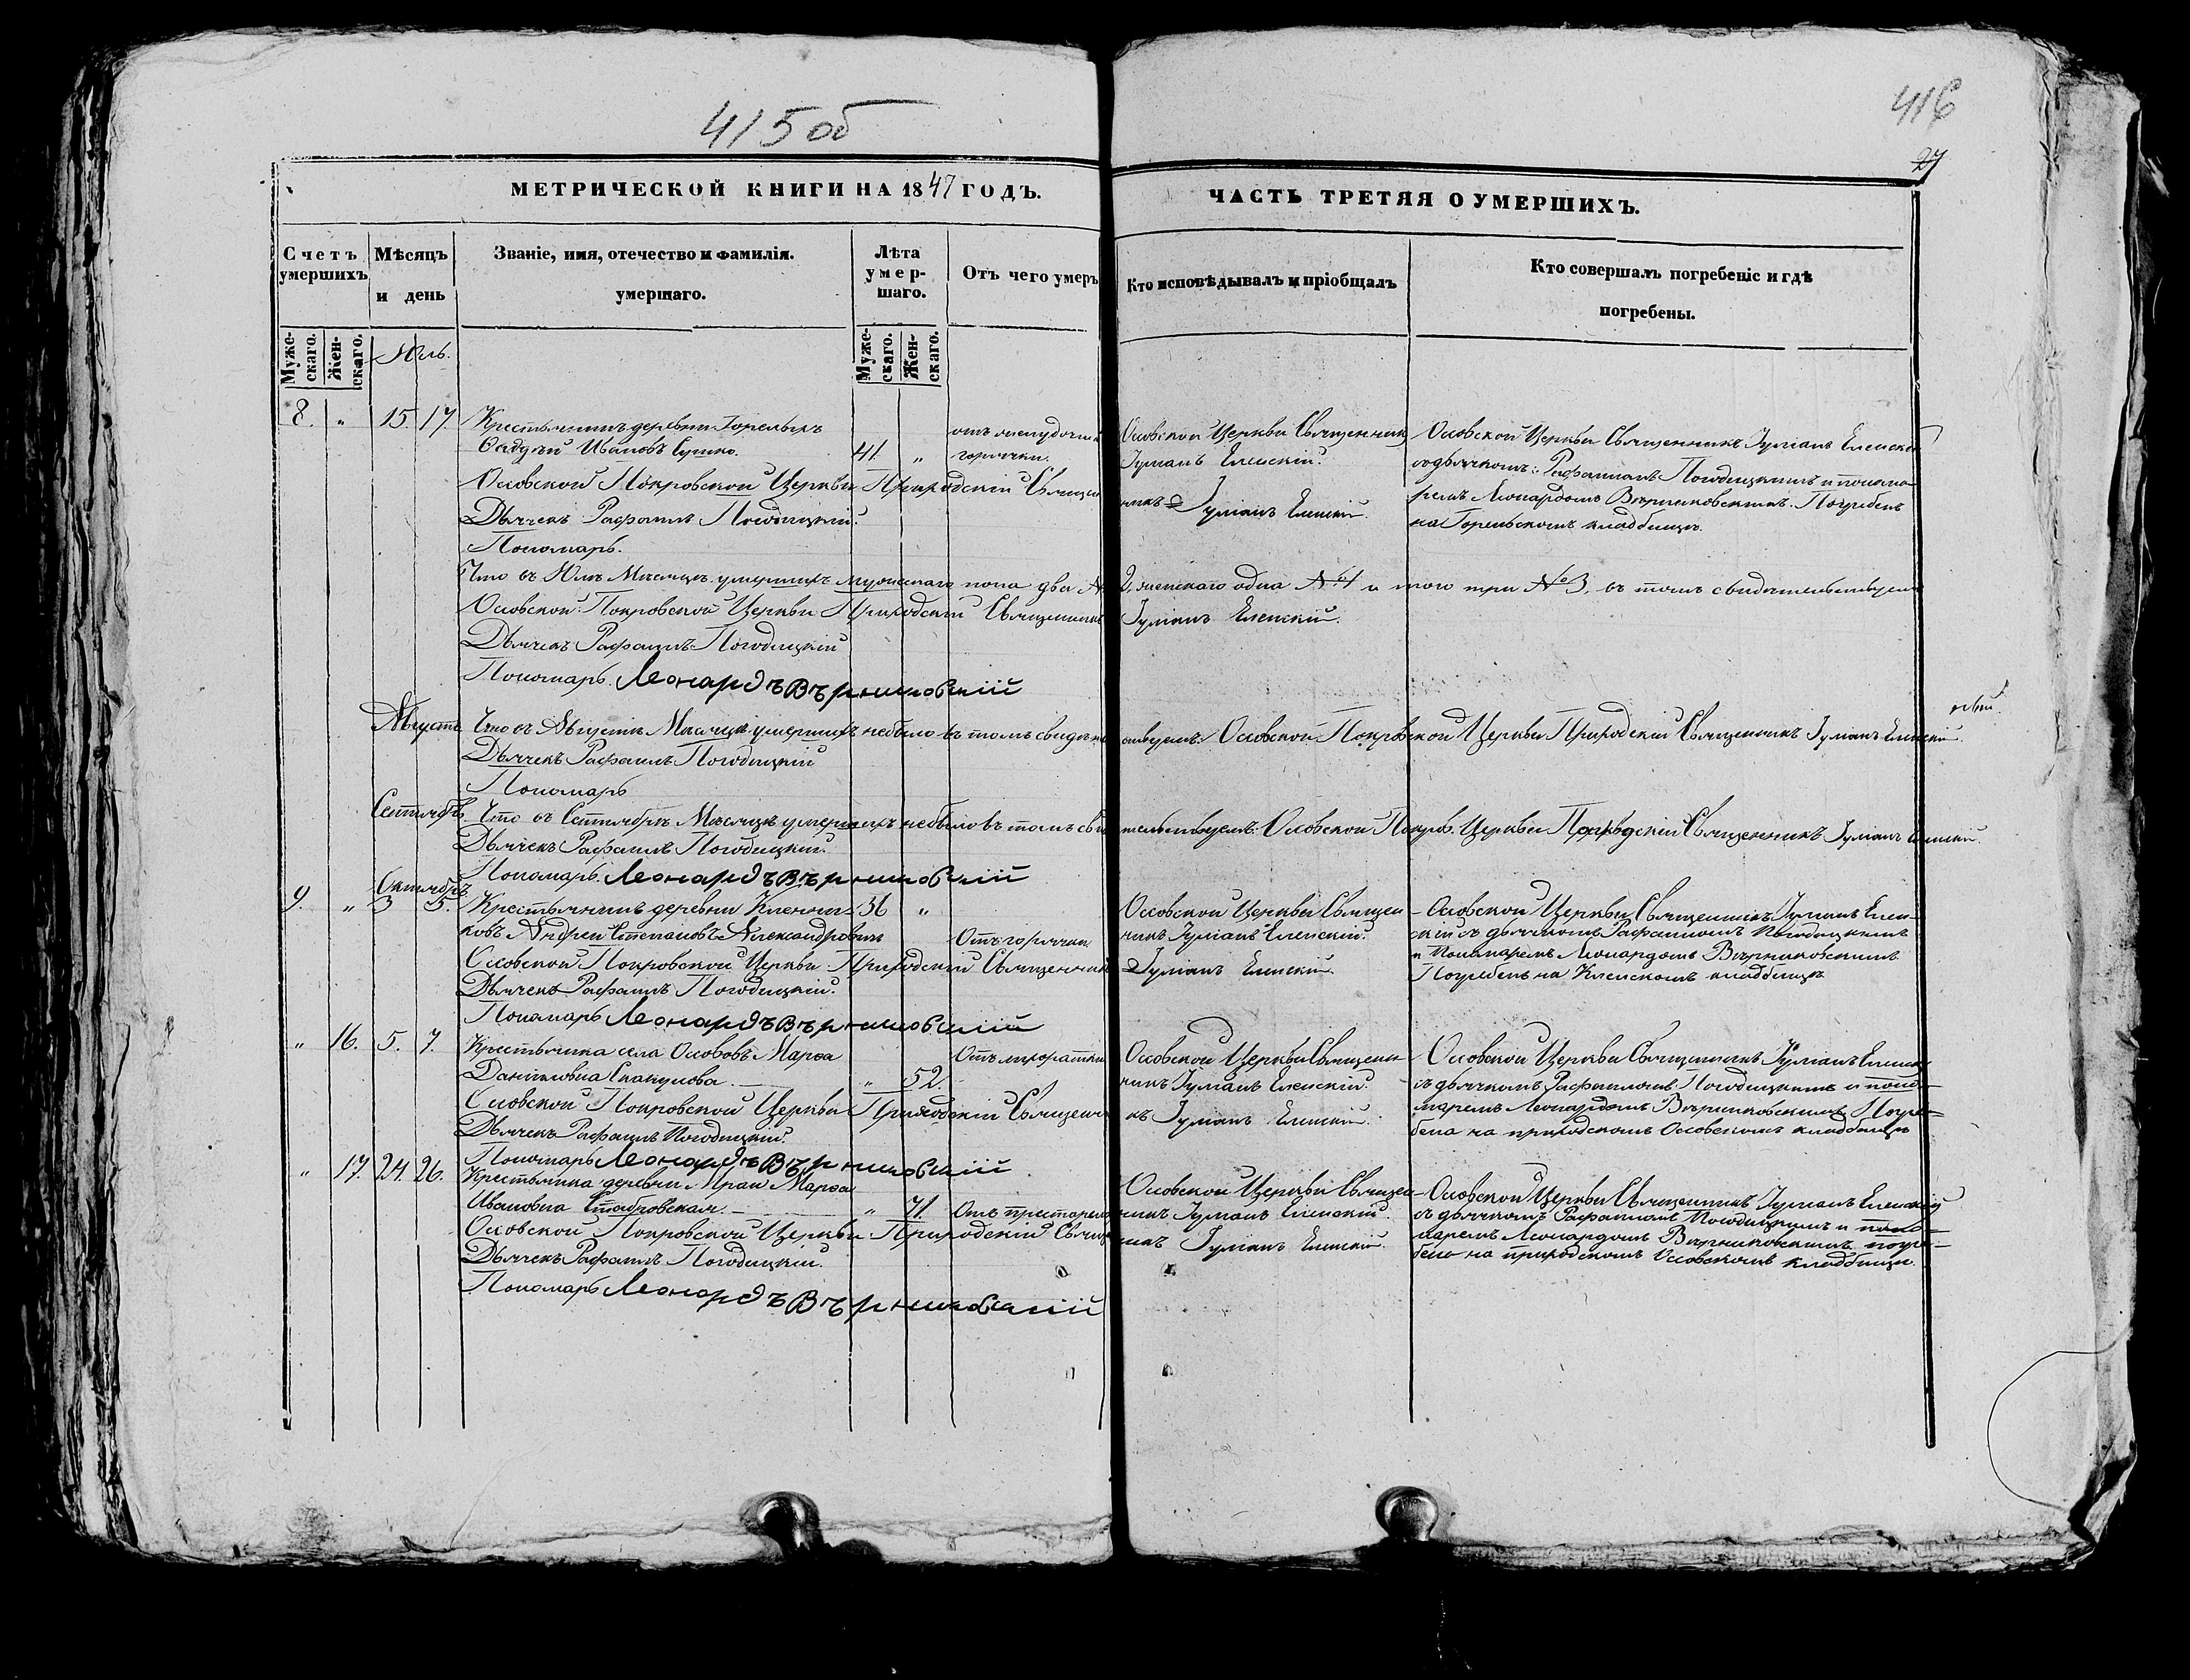 415 об
416
27
МЕТРИЧЕСКОЙ КНИГИ НА 1847 ГОДЪ.
ЧАСТЬ ТРЕТЯЯ О УМЕРШИХЪ.
Счетъ умершихъ
Мѣсяцъ и день
Званіе, имя, отечество и фамилія. умершаго.
Лѣта умер-шаго.
Отъ чего умеръ
Кто исповѣдывалъ и пріобщалъ
Кто совершалъ погребеніе и гдѣ погребены.
Муже-скаго.
Жен-скаго.
Юль.
Муже-скаго.
Жен-скаго.
8. " 15. 17 Крестьянинъ деревни
Иановъ Сушко. 41. " горячки.
Осовской Церкви Священник
Гуліанъ Еленскій.
Осовской Церкви Священникъ Гуліанъ Еленскій
Рафаиломъ Погодицкимъ и понома
ремъ Леонардомъ Вѣрниковскимъ. Погребенъ
на кладбищѣ.
Осовской Покровской Церкви Приходскій Священ
никъ Гуліанъ Еленскій.
Дьячекъ Рафаилъ Погодицкій.
Пономарь.
Что въ Юлѣ Мѣсяцѣ умершихъ мужескаго пола два № 2, женскаго одна № 1 и того три № 3, въ томъ свидѣтельствуемъ
Осовской Покровской Церкви Приходскій Священникъ Гуліанъ Еленскій.
Дьячекъ Рафаилъ Погодицкій
Пономарь Леонардъ Вѣрниковскій
Августъ. Что въ Августѣ Мѣсяцѣ умершихъ небыло въ томъ свидѣте
льствуемъ: Осовской Покровской Церкви Приходскій Священникъ Гуліанъ Еленскій.
Дьячекъ Рафаилъ Погодицкій
Пономарь
Сентябрь. Что въ Сентябрѣ Мѣсяцѣ умершихъ небыло въ томъ сви
тельствуемъ: Осовской Покров. Церкви Приходскій Священникъ Гуліанъ Еленскій.
Дьячекъ Рафаилъ Погодицкій.
Пономарь. Леонардъ Вѣрниковскій
Октябрь
9. " 3 5. Крестьянинъ деревни 36 "
ковъ Андрей Степановъ Александровичъ Отъ горячки
Осовской Церкви Священ
никъ Гуліанъ Еленскій.
Осовской Церкви Священникъ Гуліанъ Елен
скій съ дьячкомъ Рафаиломъ Погодицкимъ
и Пономаремъ Леонардомъ Вѣрниковскимъ
Погребенъ на кладбищѣ
Осовской Покровской Церкви Приходскій Священник
Гуліанъ Еленскій
Дьячекъ Рафаилъ Погодицкій.
Пономарь Леонардъ Вѣрниковскій
" 16. 5. 7. Крестьянка села Осововъ Марѳа
Даниловна 52.
Осовской Церкви Священ
никъ Гуліанъ Еленскій.
Осовской Церкви Священникъ Гуліанъ Еленск
съ дьячкомъ Рафаиломъ Погодицкимъ и поно-
маремъ Леонардомъ Вѣрниковскимъ Погре-
бена на приходскомъ Осовскомъ кладбищѣ
Осовской Покровской Церкви Приходскій Священ
къ Гуліанъ Еленскій.
Дьячекъ Рафаилъ Погодицкій.
Пономарь Леонардъ Вѣрниковскій
" 17. 24. 26. Крестьянка деревни Марѳа
Ивановна 71. Отъ
Осовской Церкви Священ
никъ Гуліанъ Еленскій.
Осовской Церкви Священникъ Гуліанъ Еленскій
съ дьячкомъ Рафаиломъ Погодицкимъ и поно-
маремъ Леонардомъ Вѣрниковскимъ погре-
бена на приходскомъ Осовскомъ кладбищѣ.
Осовской Покровской Церкви Приходскій Священ
никъ Гуліанъ Еленскій.
Дьячекъ Рафаилъ Погодицкій.
Пономарь Леонардъ Вѣрниковскій